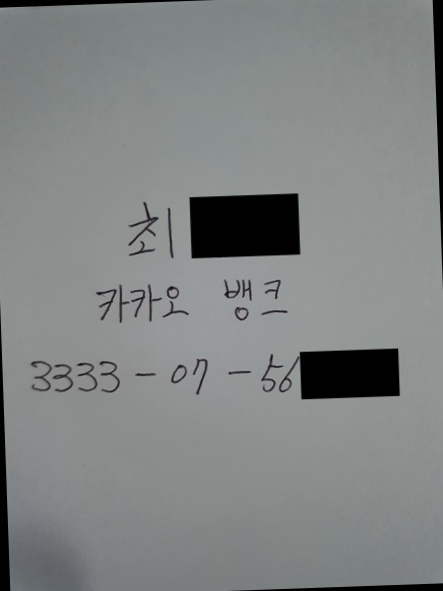 최
카카오 뱅크
3333 - 07 - 56